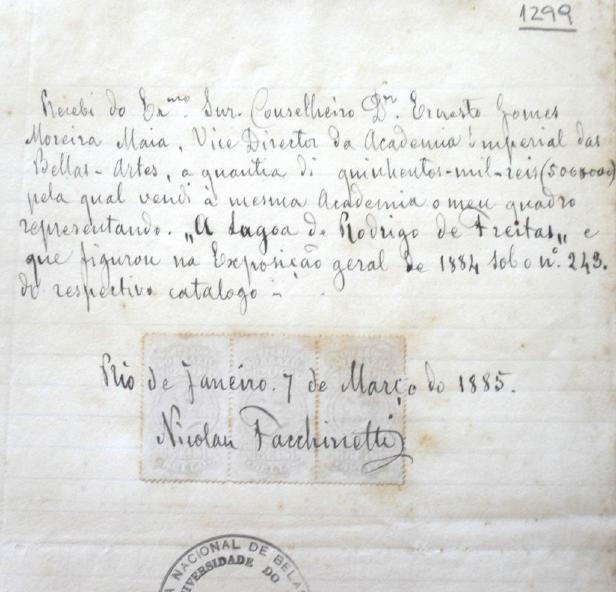 1299
Recebi do Ex.mo Snr. Conselheiro Dr. Ernesto Gomes
Moreira Maia, Vice Director da Academia imperial das
Bellas-Artes, a quantia di quinhentos-mil-reis (500$000)
pela qual vendi à mesma Academia o meu quadro
representando. „A Lagoa de Rodrigo de Freitas„ e
que figurou na Exposição geral de 1884 sob o nº. 243.
do respectivo catalogo -
Rio de Janeiro. 7 de Março do 1885.
Nicolau Facchinetti
NACIONAL DE BELAS
UNIVERSIDADE DO